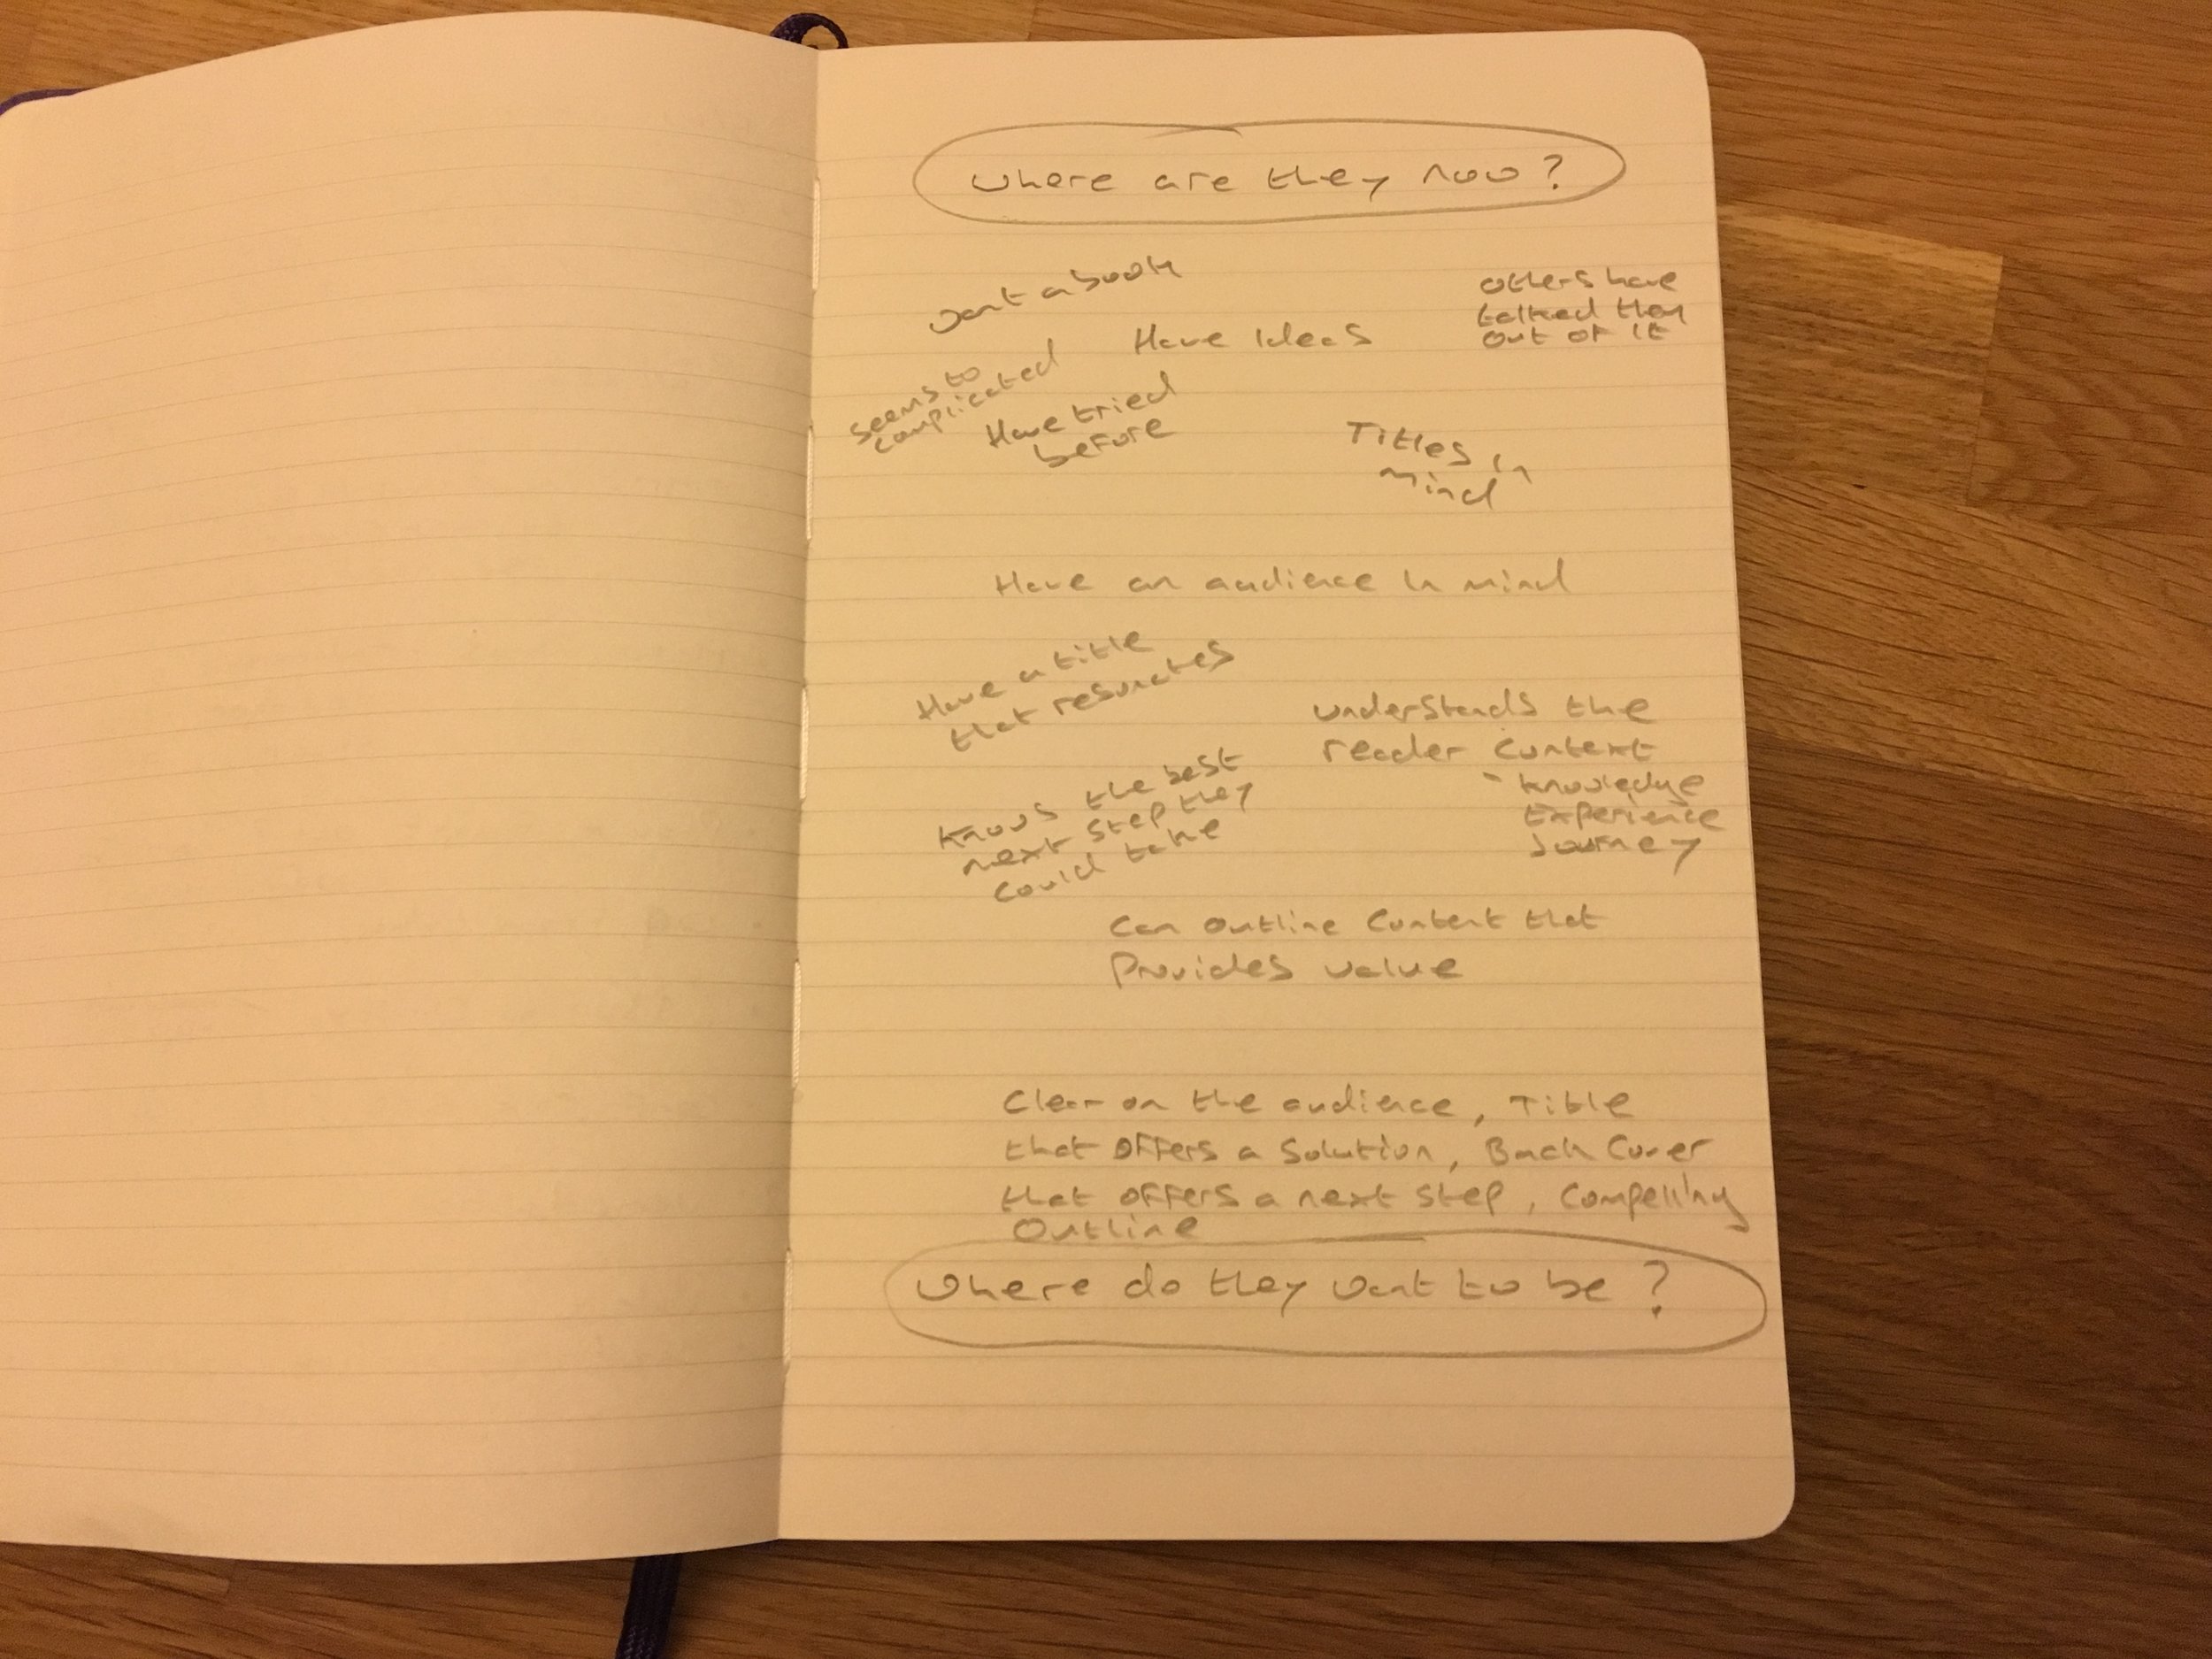 Where are they now?
Want a book
Others have
talked them
out of it
Have Ideas
Seems to
complicated
Have tried
before
Titles in
mind
Have an audience in mind
Have a title
that resonates
Understands the
reader context
- Knowledge
Experience
Journey
Knows the best
next step they
could take
Can outline content that
Provides value
Clear on the audience, Title
that offers a solution, Back Cover
that offers a next step, Compelling
Outline
Where do they want to be?